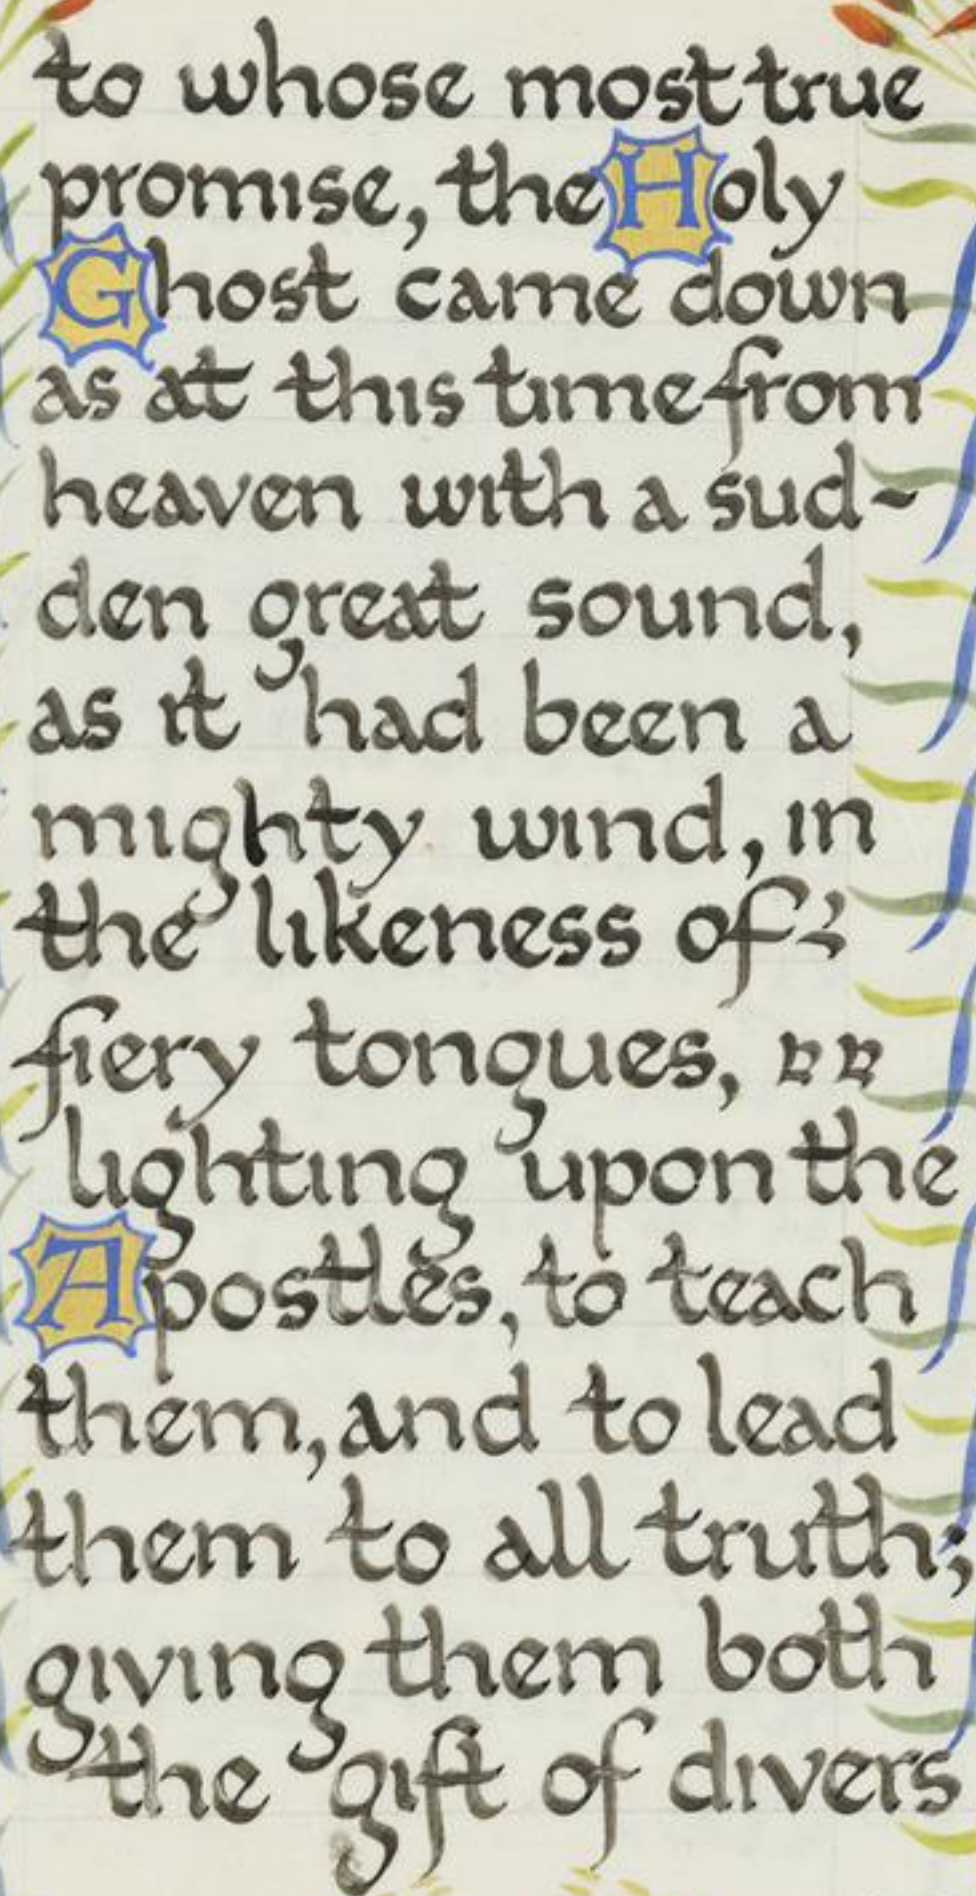 to whose most true
promise, the Holy
Ghost came down
as at this time from
heaven with a sud-
den great sound,
as it had been a
mighty wind, in
the likeness of
fiery tongues,
lighting upon the
Apostles, to teach
them, and to lead
them to all truth;
giving them both
the gift of divers